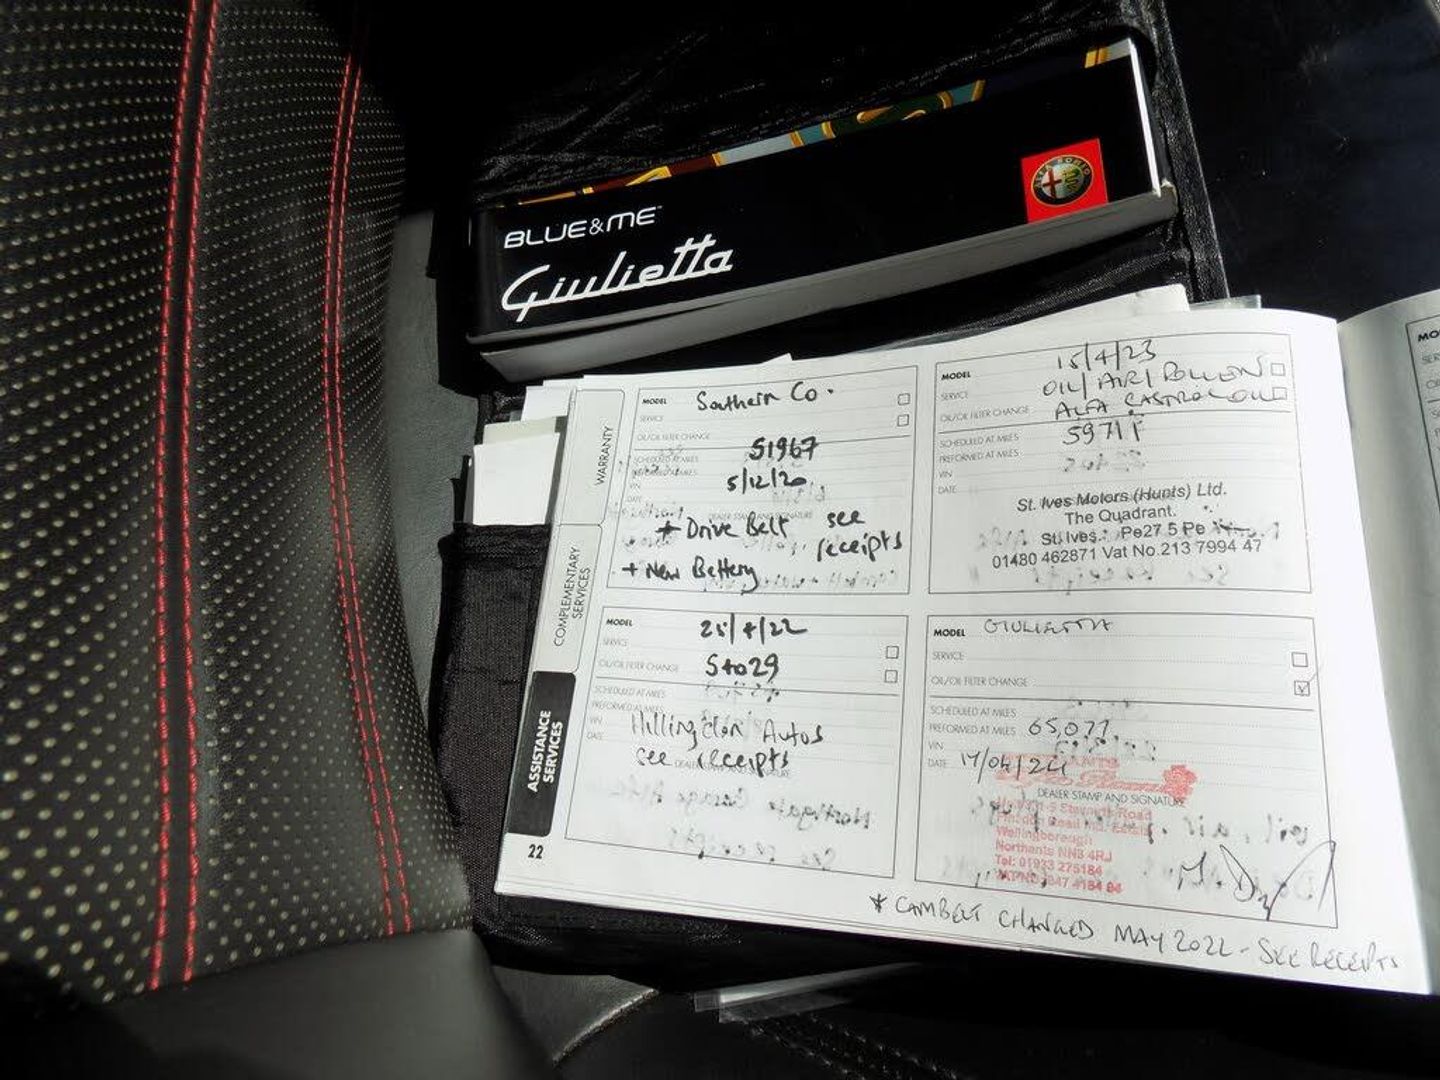 BLUE&ME™
Giulietta
ALFA ROMEO
WARRANTY
COMPLEMENTARY
SERVICES
ASSISTANCE
SERVICES
22
MODEL Southern Co.
SERVICE
OIL/OIL FILTER CHANGE
SCHEDULED AT MILES 51967
PREFORMED AT MILES
VIN 5/12/20
DATE
DEALER STAMP AND SIGNATURE
+ Drive Belt see
receipts
+ New Battery
MODEL 15/4/23
SERVICE OIL/AIR/POLLEN
OIL/OIL FILTER CHANGE ALFA CASTROL OIL
SCHEDULED AT MILES
PREFORMED AT MILES
VIN
DATE
St. Ives Motors (Hunts) Ltd.
The Quadrant.
St. Ives. Pe27 5 Pe
01480 462871 Vat No.213 7994 47
MODEL
SERVICE
OIL/OIL FILTER CHANGE
SCHEDULED AT MILES
PREFORMED AT MILES
VIN Hillington Autos
DATE see receipts
DEALER STAMP AND SIGNATURE
MODEL GIULIETTA
SERVICE
OIL/OIL FILTER CHANGE
SCHEDULED AT MILES
PREFORMED AT MILES 65,077
VIN
DATE 17/04/24
DEALER STAMP AND SIGNATURE
Road
Wellingborough
Northants NN8 4RJ
Tel: 01933 275184
* CAMBELT CHANGED MAY 2022 - SEE RECEIPTS